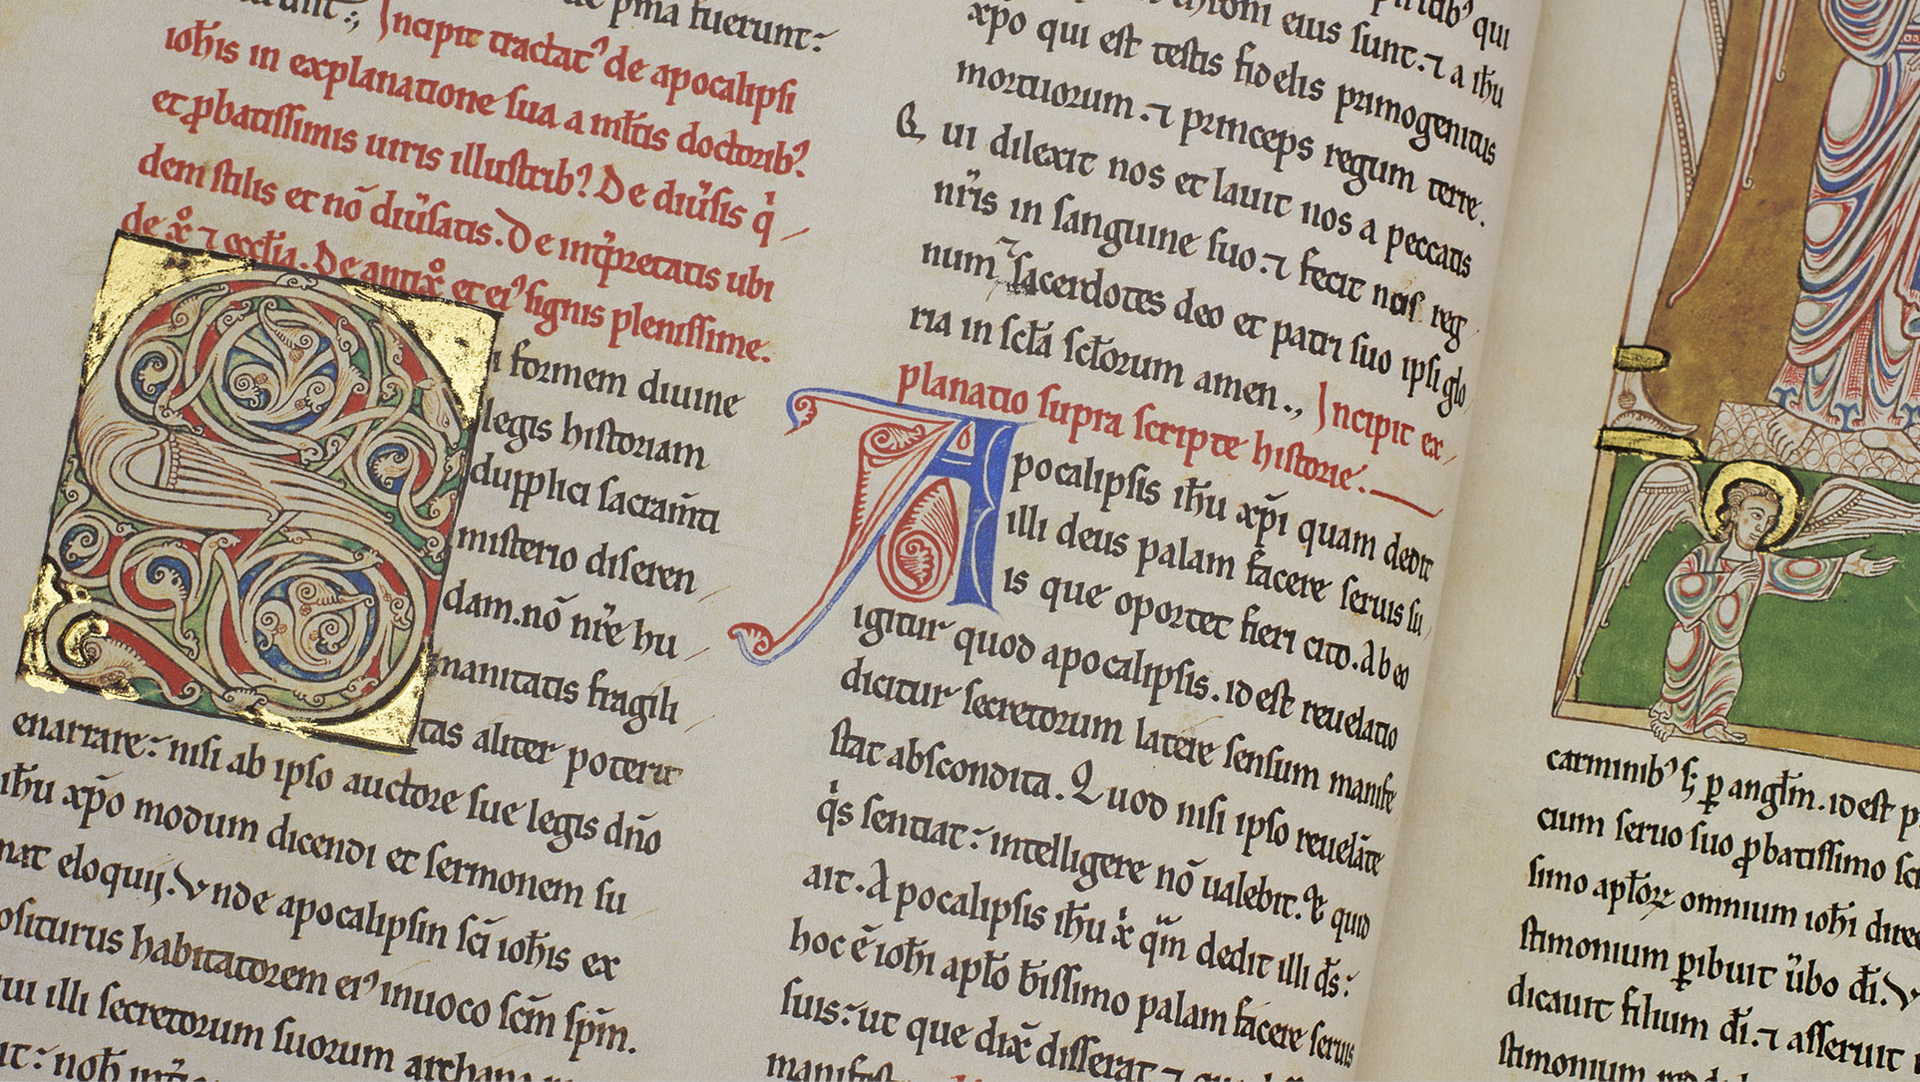 pma fuerunt:
Incipit tractat᾽ de apocalipsi
ioħis in explanatione sua a mĺtis doctorib᾽
et ꝓbatissimis uiris illustrib᾽ De diũsis q̇
dem stilis et nõ diũsatis. De int̃pretatis ubi
de xͦ ⁊ eccĺia. De antixͦ et ei᾽ signis plenissime.
Biformem diuine
legis historiam
dupplici sacram̃ti
misterio diseren
dam. nõ nr̃e hu
manitatis fragili
tas aliter poterit
enarrare: nisi ab ipso auctore sue legis dño
iħu xp̃o modum dicendi et sermonem su
mat eloquij. Vnde apocalipsin sc̃i ioħis ex
positurus habitatorem ei᾽ inuoco sc̃m sp̃m.
qui illi secretorum suorum archana
eius sunt. ⁊ a iħu
xp̃o qui est testis fidelis primogenitus
mortuorum. ⁊ princeps regum terre.
Qui dilexit nos et lauit nos a peccatis
nr̃is in sanguine suo. ⁊ fecit nos reg
num ⁊ sacerdotes deo et patri suo ipsi glo
ria in sc̃la sc̃lorum amen., Incipit ex
planatio supra scripte historie.
Apocalipsis iħu xp̃i quam dedit
illi deus palam facere seruis su
is que oportet fieri cito. Ab eo
igitur quod apocalipsis. id est reuelatio
dicitur secretorum latere sensum manife
stat abscondita. Quod nisi ipso reuelãte
q̇s sentiat: intelligere nõ ualebit. Et quid
ait. Apocalipsis iħu x̊ q̃m dedit illi d̃s:
hoc ẽ ioħi apĺo b̃issimo palam facere seruis
suis: ut que dix̃ disserat ⁊
carminib᾽ sꝫ ꝑ angĺm. id est
cium seruo suo ꝓbatissimo
simo apĺoꝝ omnium ioħi
stimonium ꝑibuit ũbo d̃i.
dicauit filium d̃i. ⁊ asseruit
stimonium